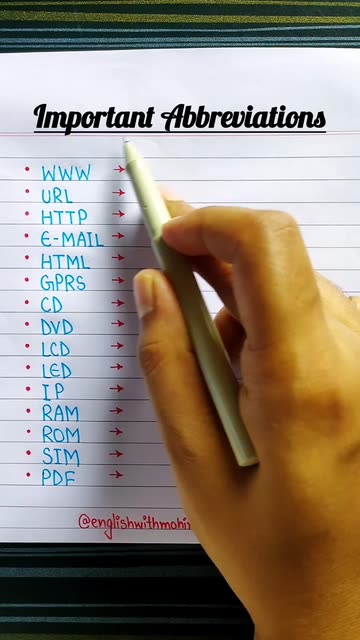 Important Abbreviations
• WWW →
• URL →
• HTTP →
• E-MAIL →
• HTML →
• GPRS →
• CD →
• DVD →
• LCD →
• LED →
• IP →
• RAM →
• ROM →
• SIM →
• PDF →